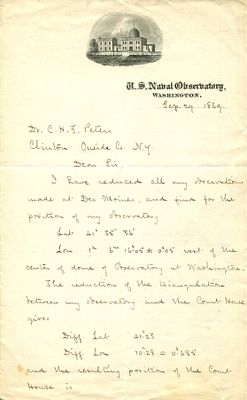 U. S. Naval Observatory,
WASHINGTON.
Sep. 29 1869.
Dr. C. H. F. Peters
Clinton Oneida Co. N.Y.
Dear Sir,
I have reduced all my observations
made at Des Moines, and find for the
position of my observatory
Lat 41° 35' 36"
Lon 1h 6m 16s.05 ± 0s.05 west of the
center of dome of Observatory at Washington.
The reduction of the triangulation
between my observatory and the Court House
gives
Diff Lat 21".23
Diff Lon 10".28 = 0s.685
and the resulting position of the Court
House is